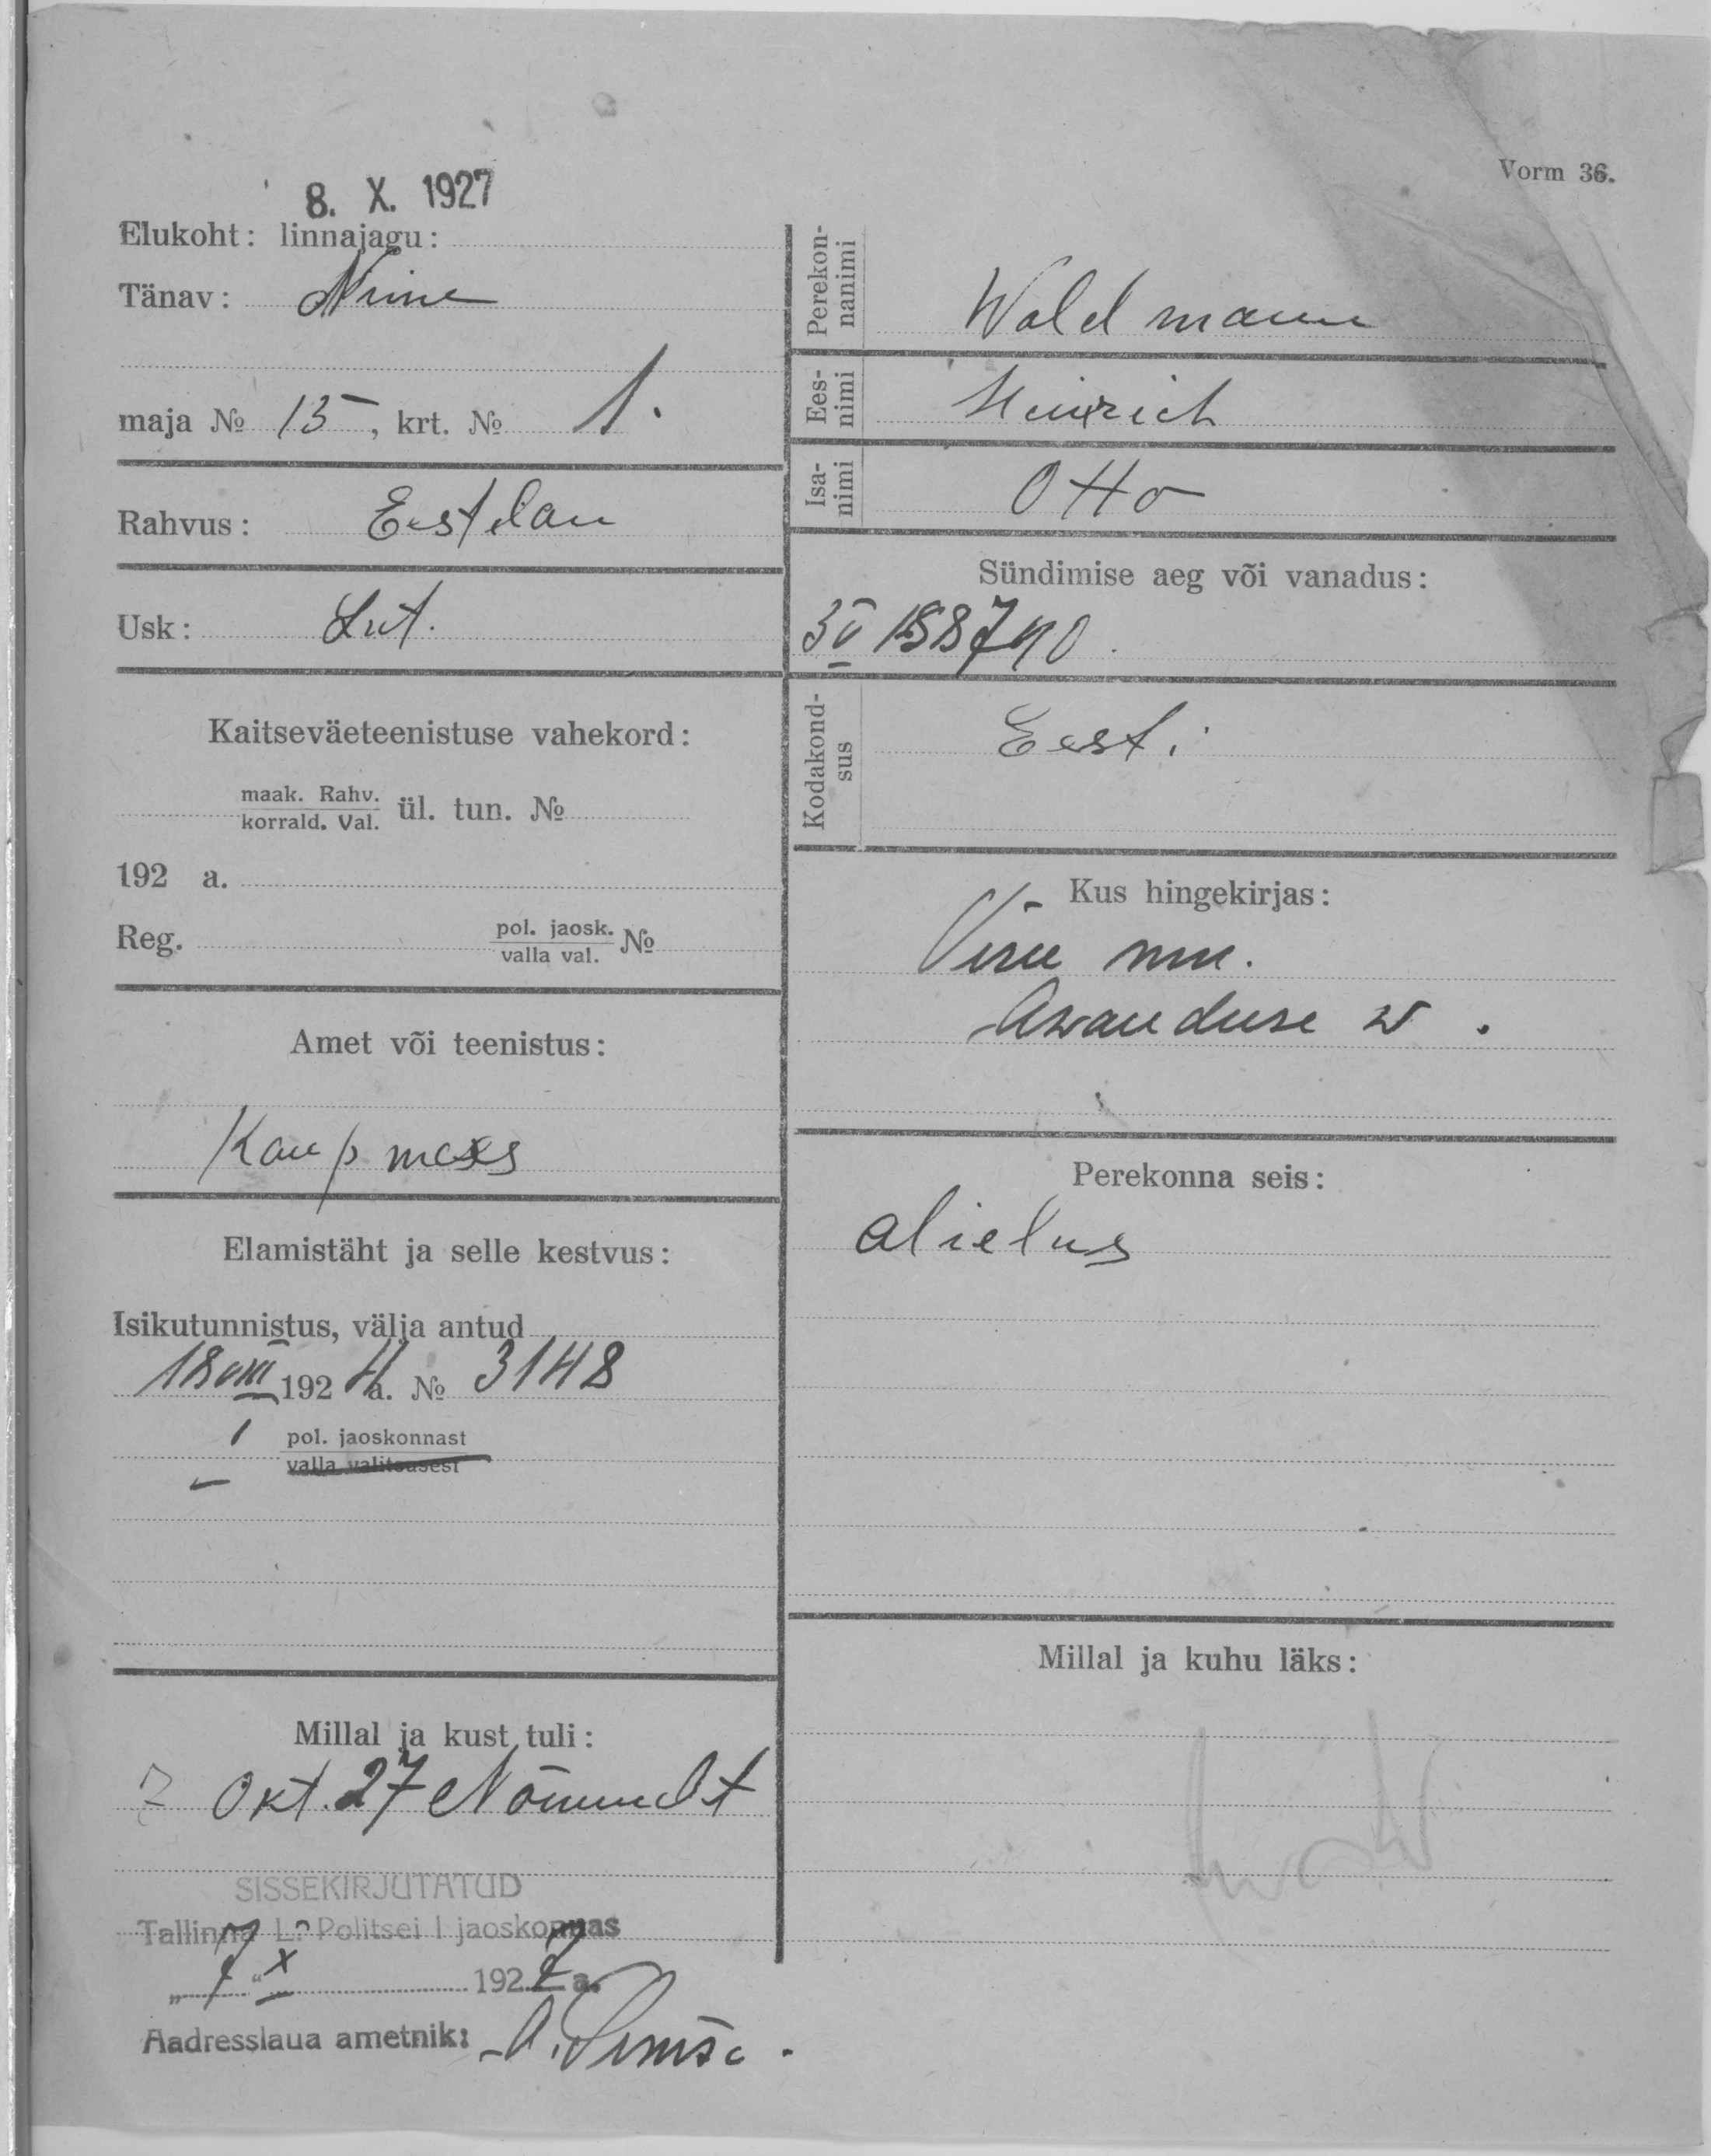 Vorm 36.
8. X. 1927
Elukoht: linnajagu:
Tänav: Niine
maja № 15, krt. № 1.
Rahvus: Eestlan
Usk: Lut.
Kaitseväeteenistuse vahekord:
maak. Rahv.
korrald. Val. ül. tun. №
192 a.
Reg. pol. jaosk.
valla val. №
Amet või teenistus:
Kaupmees
Elamistäht ja selle kestvus:
Isikutunnistus, välja antud
18 VIII 1924 a. № 3148
1 pol. jaoskonnast
valla valitsusest
Millal ja kust tuli:
7 Okt. 27 Nõmmelt
SISSEKIRJUTATUD
Tallinna L. Politsei I jaoskonnas
„7" X 1927 a.
Aadresslaua ametnik: A.
Perekon-
nanimi
Waldmann
Ees-
nimi
Heinrich
Isa-
nimi
Otto
Sündimise aeg või vanadus:
3 V 1887 40.
Kodakond-
sus
Eesti
Kus hingekirjas:
Viru mk.
Awanduse w.
Perekonna seis:
abielus
Millal ja kuhu läks: